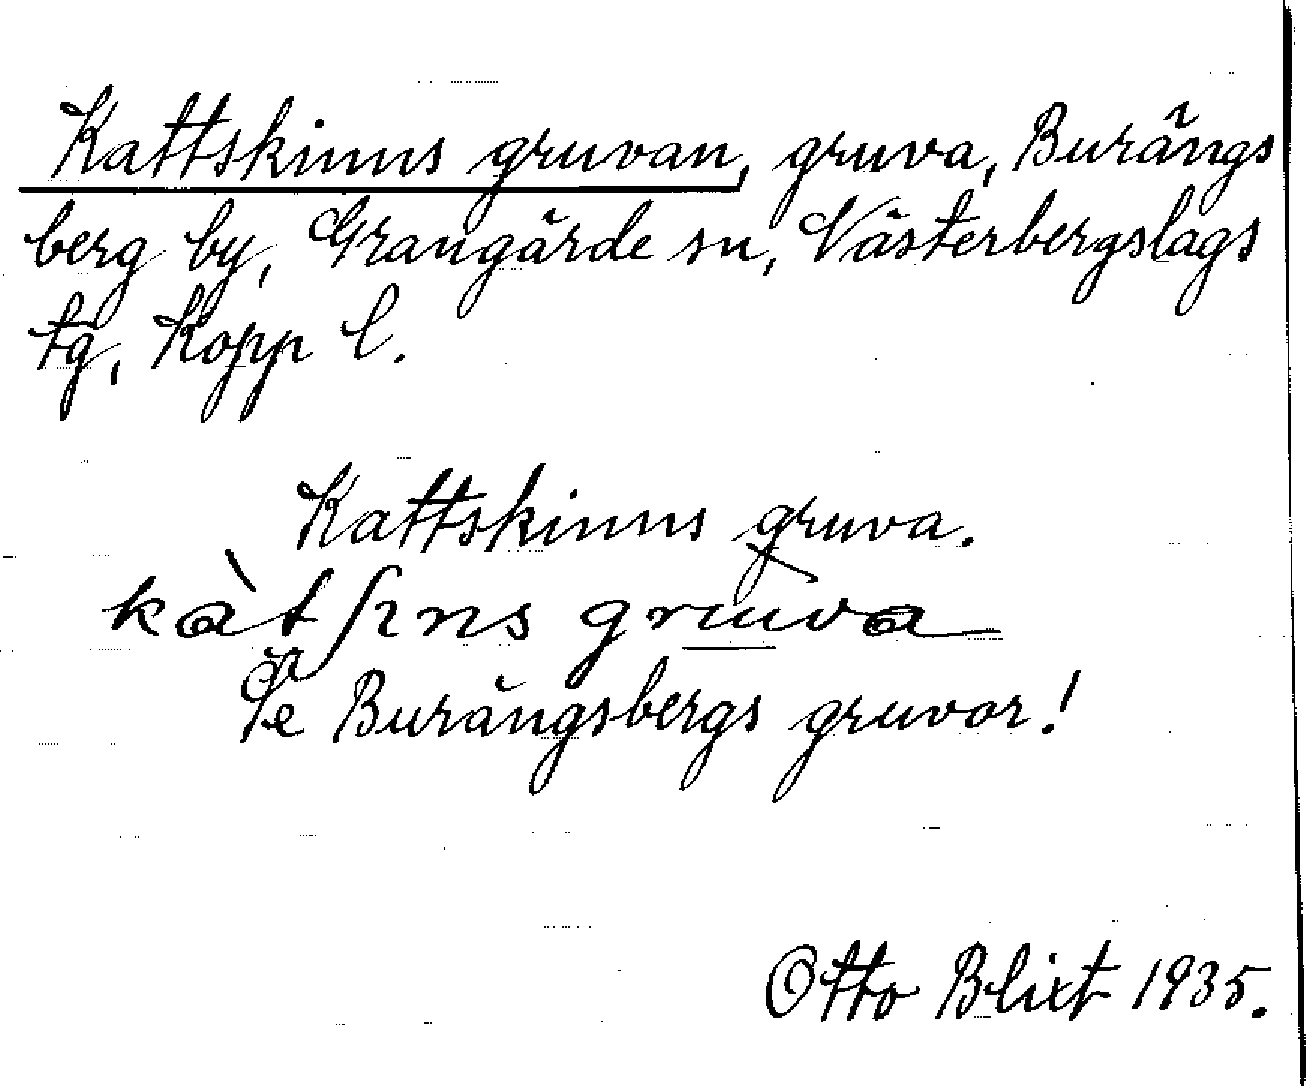 Kattskinns gruvan, gruva, Burängs
berg by, Grangärde sn, Västerbergslags
tg, Kopp l.
Kattskinns gruva.
kàtʃɩns gruva
Se Burängsbergs gruvor!
Otto Blixt 1935.